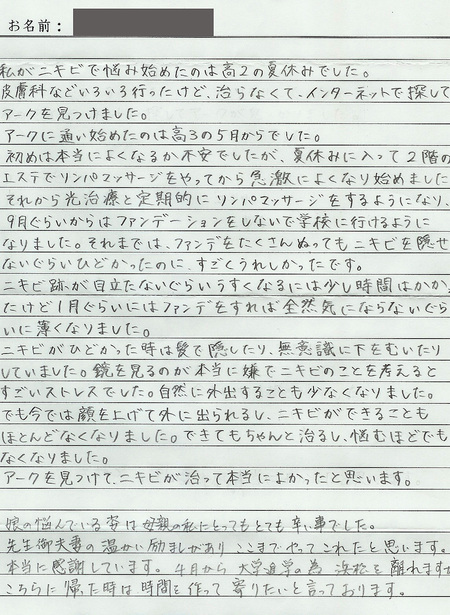 お名前：
私がニキビで悩み始めたのは高2の夏休みでした。
皮膚科などいろいろ行ったけど、治らなくて、インターネットで探して
アークを見つけました。
アークに通い始めたのは高3の5月からでした。
初めは本当によくなるか不安でしたが、夏休みに入って2階の
エステでリンパマッサージをやってから急激によくなり始めました
それから光治療と定期的にリンパマッサージをするようになり、
9月ぐらいからはファンデーションをしないで学校に行けるように
なりました。それまでは、ファンデをたくさんぬってもニキビを隠せ
ないぐらいひどかったのに、すごくうれしかったです。
ニキビ跡が目立たないぐらいうすくなるには少し時間はかかっ
たけど1月ぐらいにはファンデをすれば全然気にならないぐら
いに薄くなりました。
ニキビがひどかった時は髪で隠したり、無意識に下をむいたり
していました。鏡を見るのが本当に嫌でニキビのことを考えると
すごいストレスでした。自然に外出することも少なくなりました。
でも今では顔を上げて外に出られるし、ニキビができることも
ほとんどなくなりました。できてもちゃんと治るし、悩むほどでも
なくなりました。
アークを見つけて、ニキビが治って本当によかったと思います。
娘の悩んでいる姿は母親の私にとってもとても辛い事でした。
先生御夫妻の温かい励ましがあり ここまでやってこれたと思います。
本当に感謝しています。4月から 大学進学の為 浜松を離れますが
こちらに帰った時は時間を作って寄りたいと言っております。